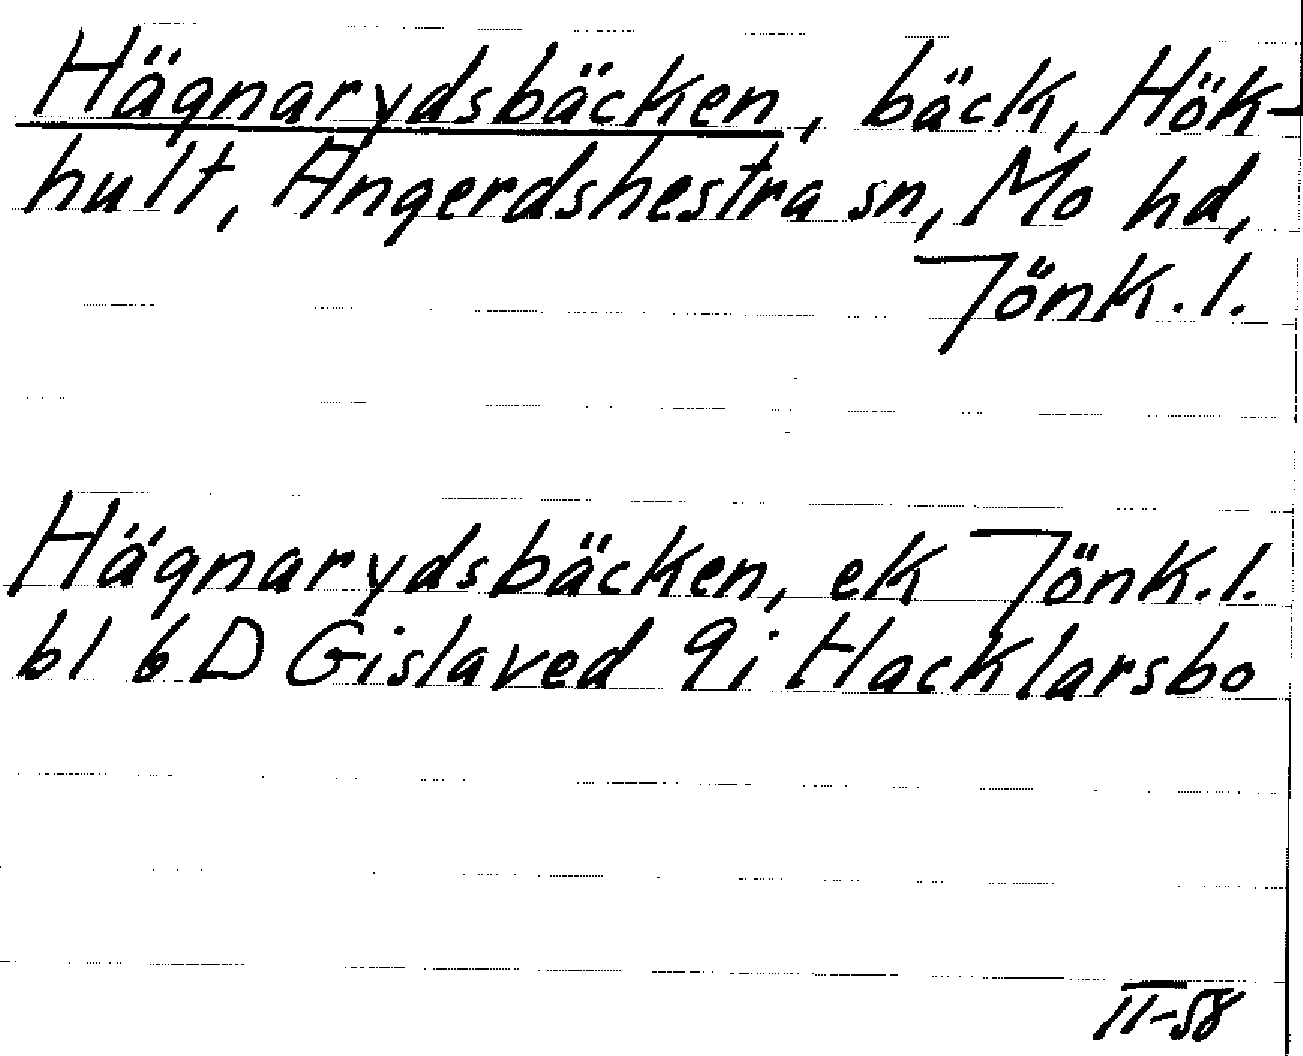 Hägnarydsbäcken, bäck, Hök-
hult, Angerdshestra sn, Mo hd,
Jönk.l.
Hägnarydsbäcken, ek Jönk.l.
bl 6D Gislaved 9i Hacklarsbo
II-58